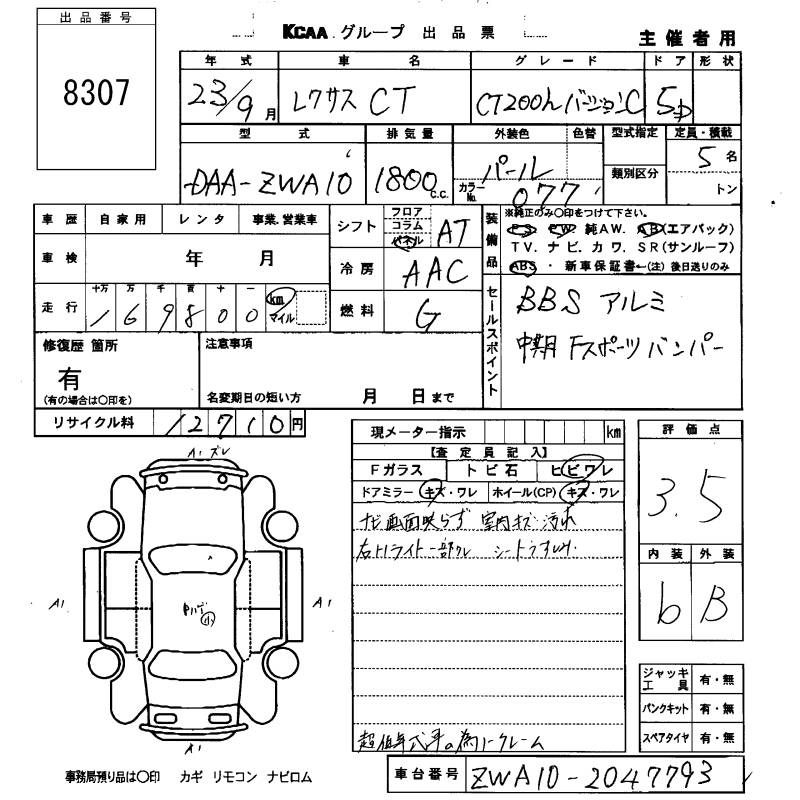 出品番号
8307
KCAA グループ 出品票
主催者用
年式 車名 グレード ドア 形状
23/9月 レクサス CT CT200h バージョンC 5D
型式 排気量 外装色 色替 型式指定 定員・積載
DAA-ZWA10 1800 C.C. パール 類別区分 5名
カラーNo. 077 トン
車歴 自家用 レンタ 事業・営業車
車検 年 月
走行 十万 万 千 百 十 一
169800 km マイル
シフト フロア コラム パネル AT
冷房 AAC
燃料 G
装備品
※純正のみ○印をつけて下さい。
PS PW 純AW. AB(エアバック)
TV. ナビ. カワ. SR(サンルーフ)
ABS ・ 新車保証書←(注) 後日送りのみ
セールスポイント
BBS アルミ
中期 Fスポーツ バンパー
修復歴 箇所
有
(有の場合は○印を)
注意事項
名変期日の短い方 月 日まで
リサイクル料 12710円
現メーター指示 km
【査定員記入】
Fガラス トビ石 ヒビワレ
ドアミラー キズ・ワレ ホイール(CP) キズ・ワレ
ナビ画面映らず 室内キズ 汚れ
右Hライト一部ワレ
超低年式車の為ノークレーム
評価点
3.5
内装 外装
b B
ジャッキ工具 有・無
パンクキット 有・無
スペアタイヤ 有・無
A1 ズレ
A1
A1
小
A1
事務局預り品は○印 カギ リモコン ナビロム
車台番号 ZWA10-2047793